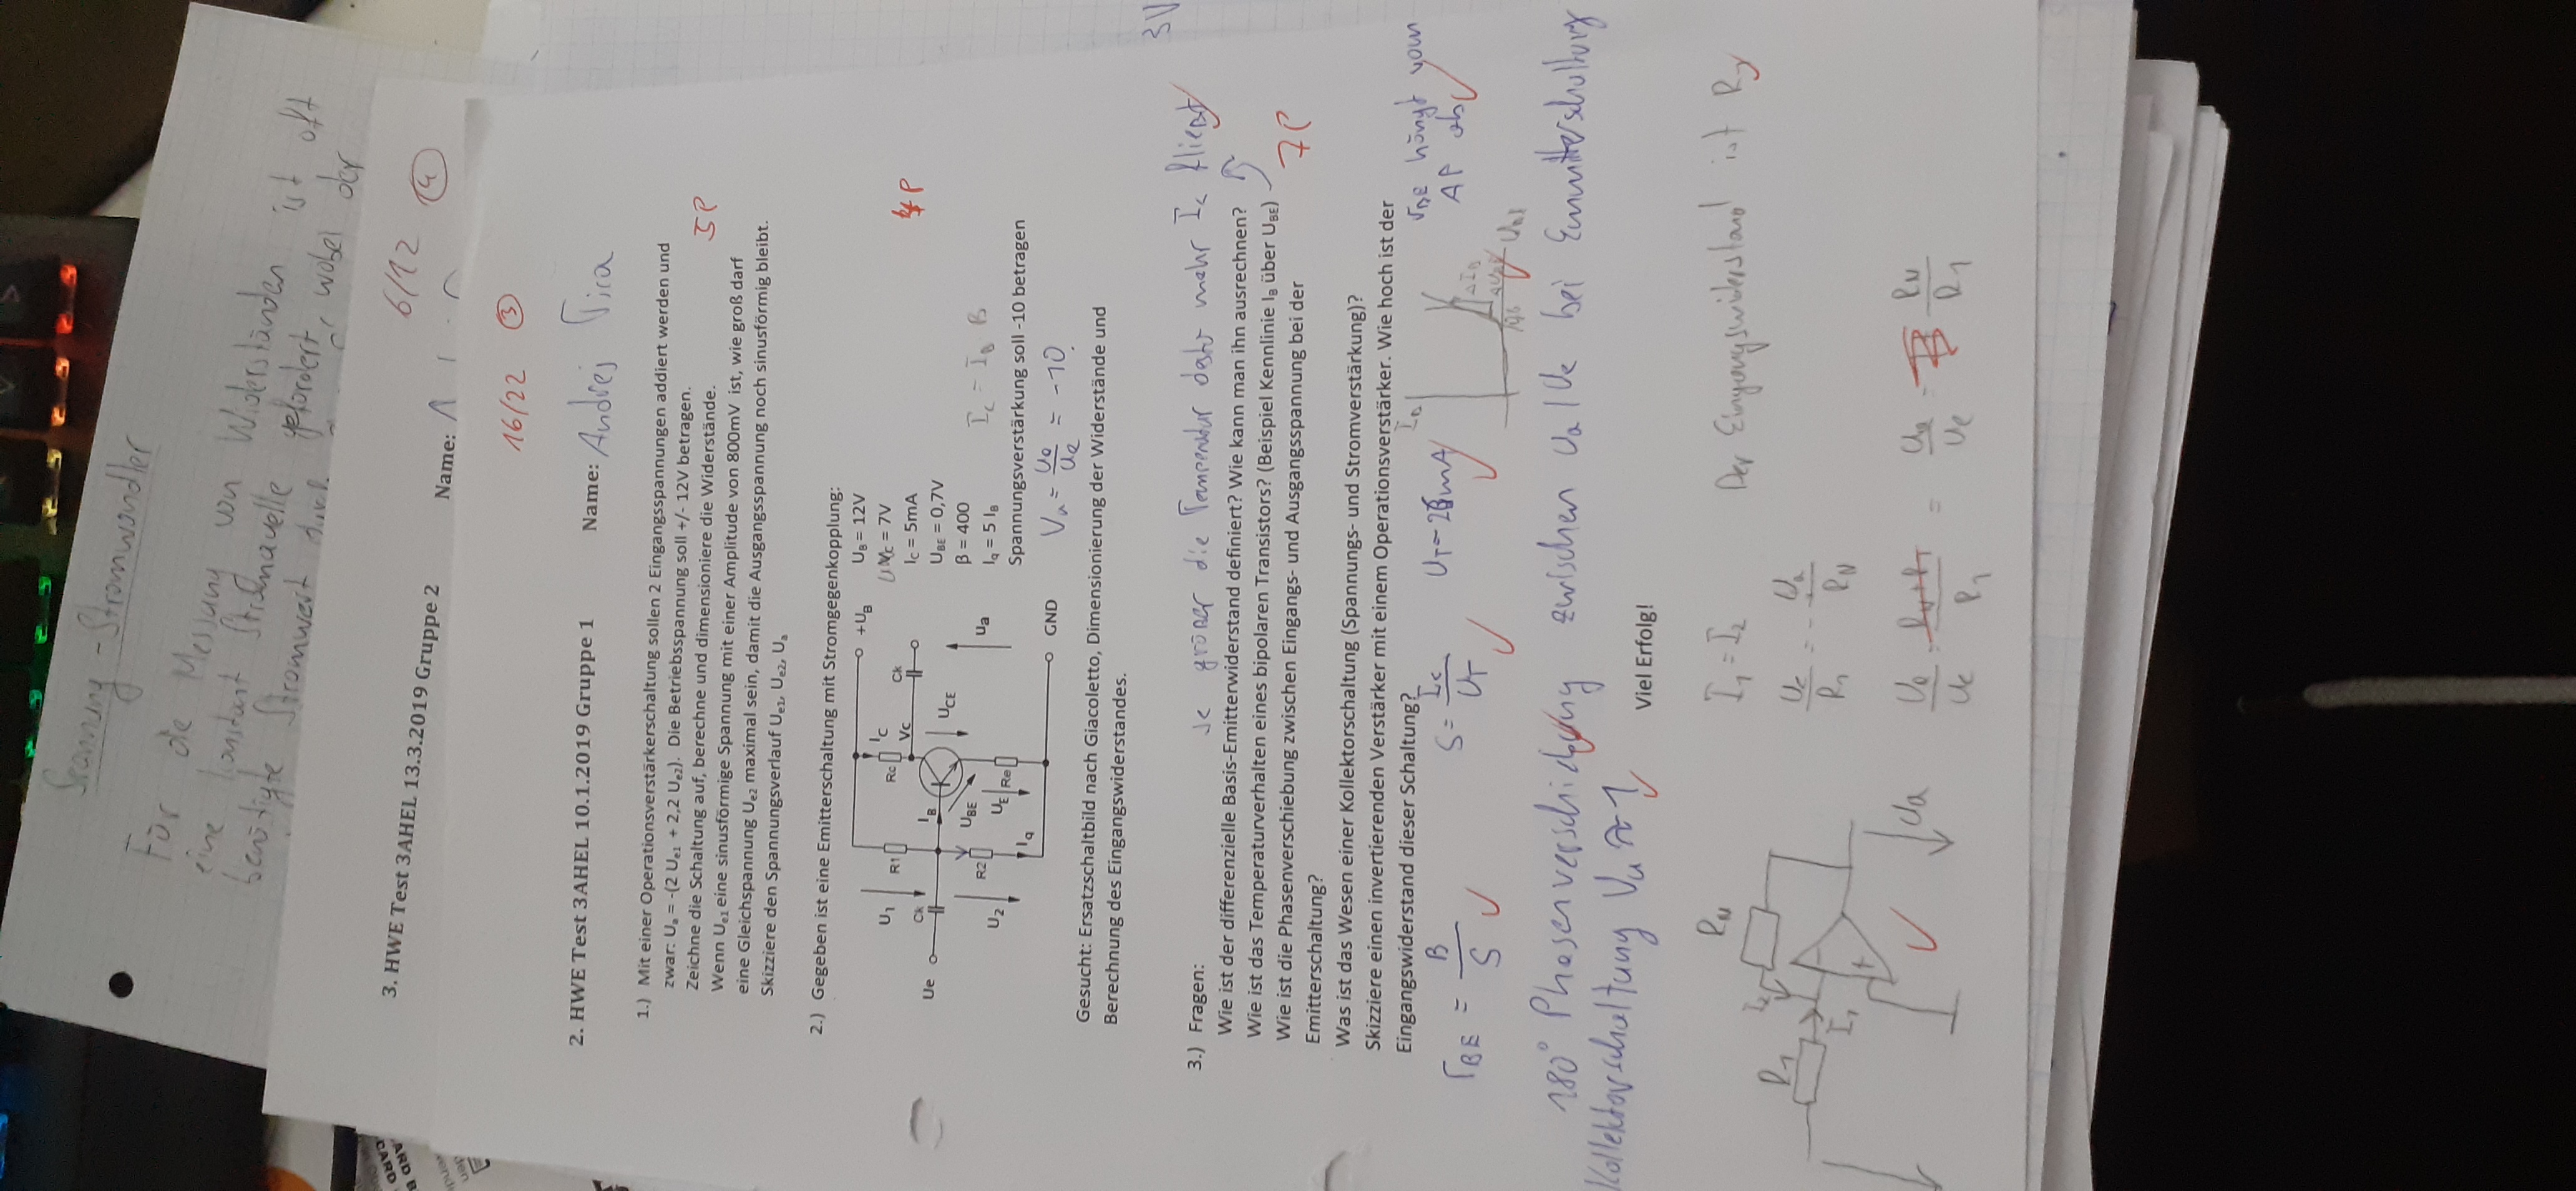 Spannung - Stromwandler
Für die Messung von Widerständen ist oft
eine konstant Stromquelle gefordert, wobei der
benötigte Stromwert
3. HWE Test 3AHEL 13.3.2019 Gruppe 2
6/12 4
Name:
16/22 3
2. HWE Test 3AHEL 10.1.2019 Gruppe 1
Name: Andrej Tica
1.) Mit einer Operationsverstärkerschaltung sollen 2 Eingangsspannungen addiert werden und
zwar: Ua = -(2 Ue1 + 2,2 Ue2). Die Betriebsspannung soll +/- 12V betragen.
Zeichne die Schaltung auf, berechne und dimensioniere die Widerstände.
5P
Wenn Ue1 eine sinusförmige Spannung mit einer Amplitude von 800mV ist, wie groß darf
eine Gleichspannung Ue2 maximal sein, damit die Ausgangsspannung noch sinusförmig bleibt.
Skizziere den Spannungsverlauf Ue1, Ue2, Ua
2.) Gegeben ist eine Emitterschaltung mit Stromgegenkopplung:
+UB
U1
R1
Rc
IC
Vc
Ck
Ck
Ue
IB
UCE
UBE
R2
U2
UE
Re
ua
Iq
GND
UB = 12V
c = 7V
IC = 5mA
4P
UBE = 0,7V
β = 400
Iq = 5 IB
Ic = IB B
Spannungsverstärkung soll -10 betragen
Vu = ua/ue = -10
Gesucht: Ersatzschaltbild nach Giacoletto, Dimensionierung der Widerstände und
Berechnung des Eingangswiderstandes.
3V
3.) Fragen:
Je größer die Temperatur desto mehr Ic fließt
Wie ist der differenzielle Basis-Emitterwiderstand definiert? Wie kann man ihn ausrechnen?
Wie ist das Temperaturverhalten eines bipolaren Transistors? (Beispiel Kennlinie IB über UBE)
7P
Wie ist die Phasenverschiebung zwischen Eingangs- und Ausgangsspannung bei der
Emitterschaltung?
Was ist das Wesen einer Kollektorschaltung (Spannungs- und Stromverstärkung)?
Skizziere einen invertierenden Verstärker mit einem Operationsverstärker. Wie hoch ist der
Eingangswiderstand dieser Schaltung?
rBE = B/S
S = Ic/UT
UT~26mA
IB
ΔIB
rBE hängt vom
AP ab
180° Phasenverschiebung zwischen Ua/Ue bei Emmitterschaltung
Kollektorschaltung Vu ≈ 1
Viel Erfolg!
RN
I2
R1
I1
+
Ua
I1 = I2
Der Eingangswiderstand ist R1
Ue/R1 = - Ua/RN
Ua/Ue = RN+R1/R1 = Ua/Ue = RN/R1